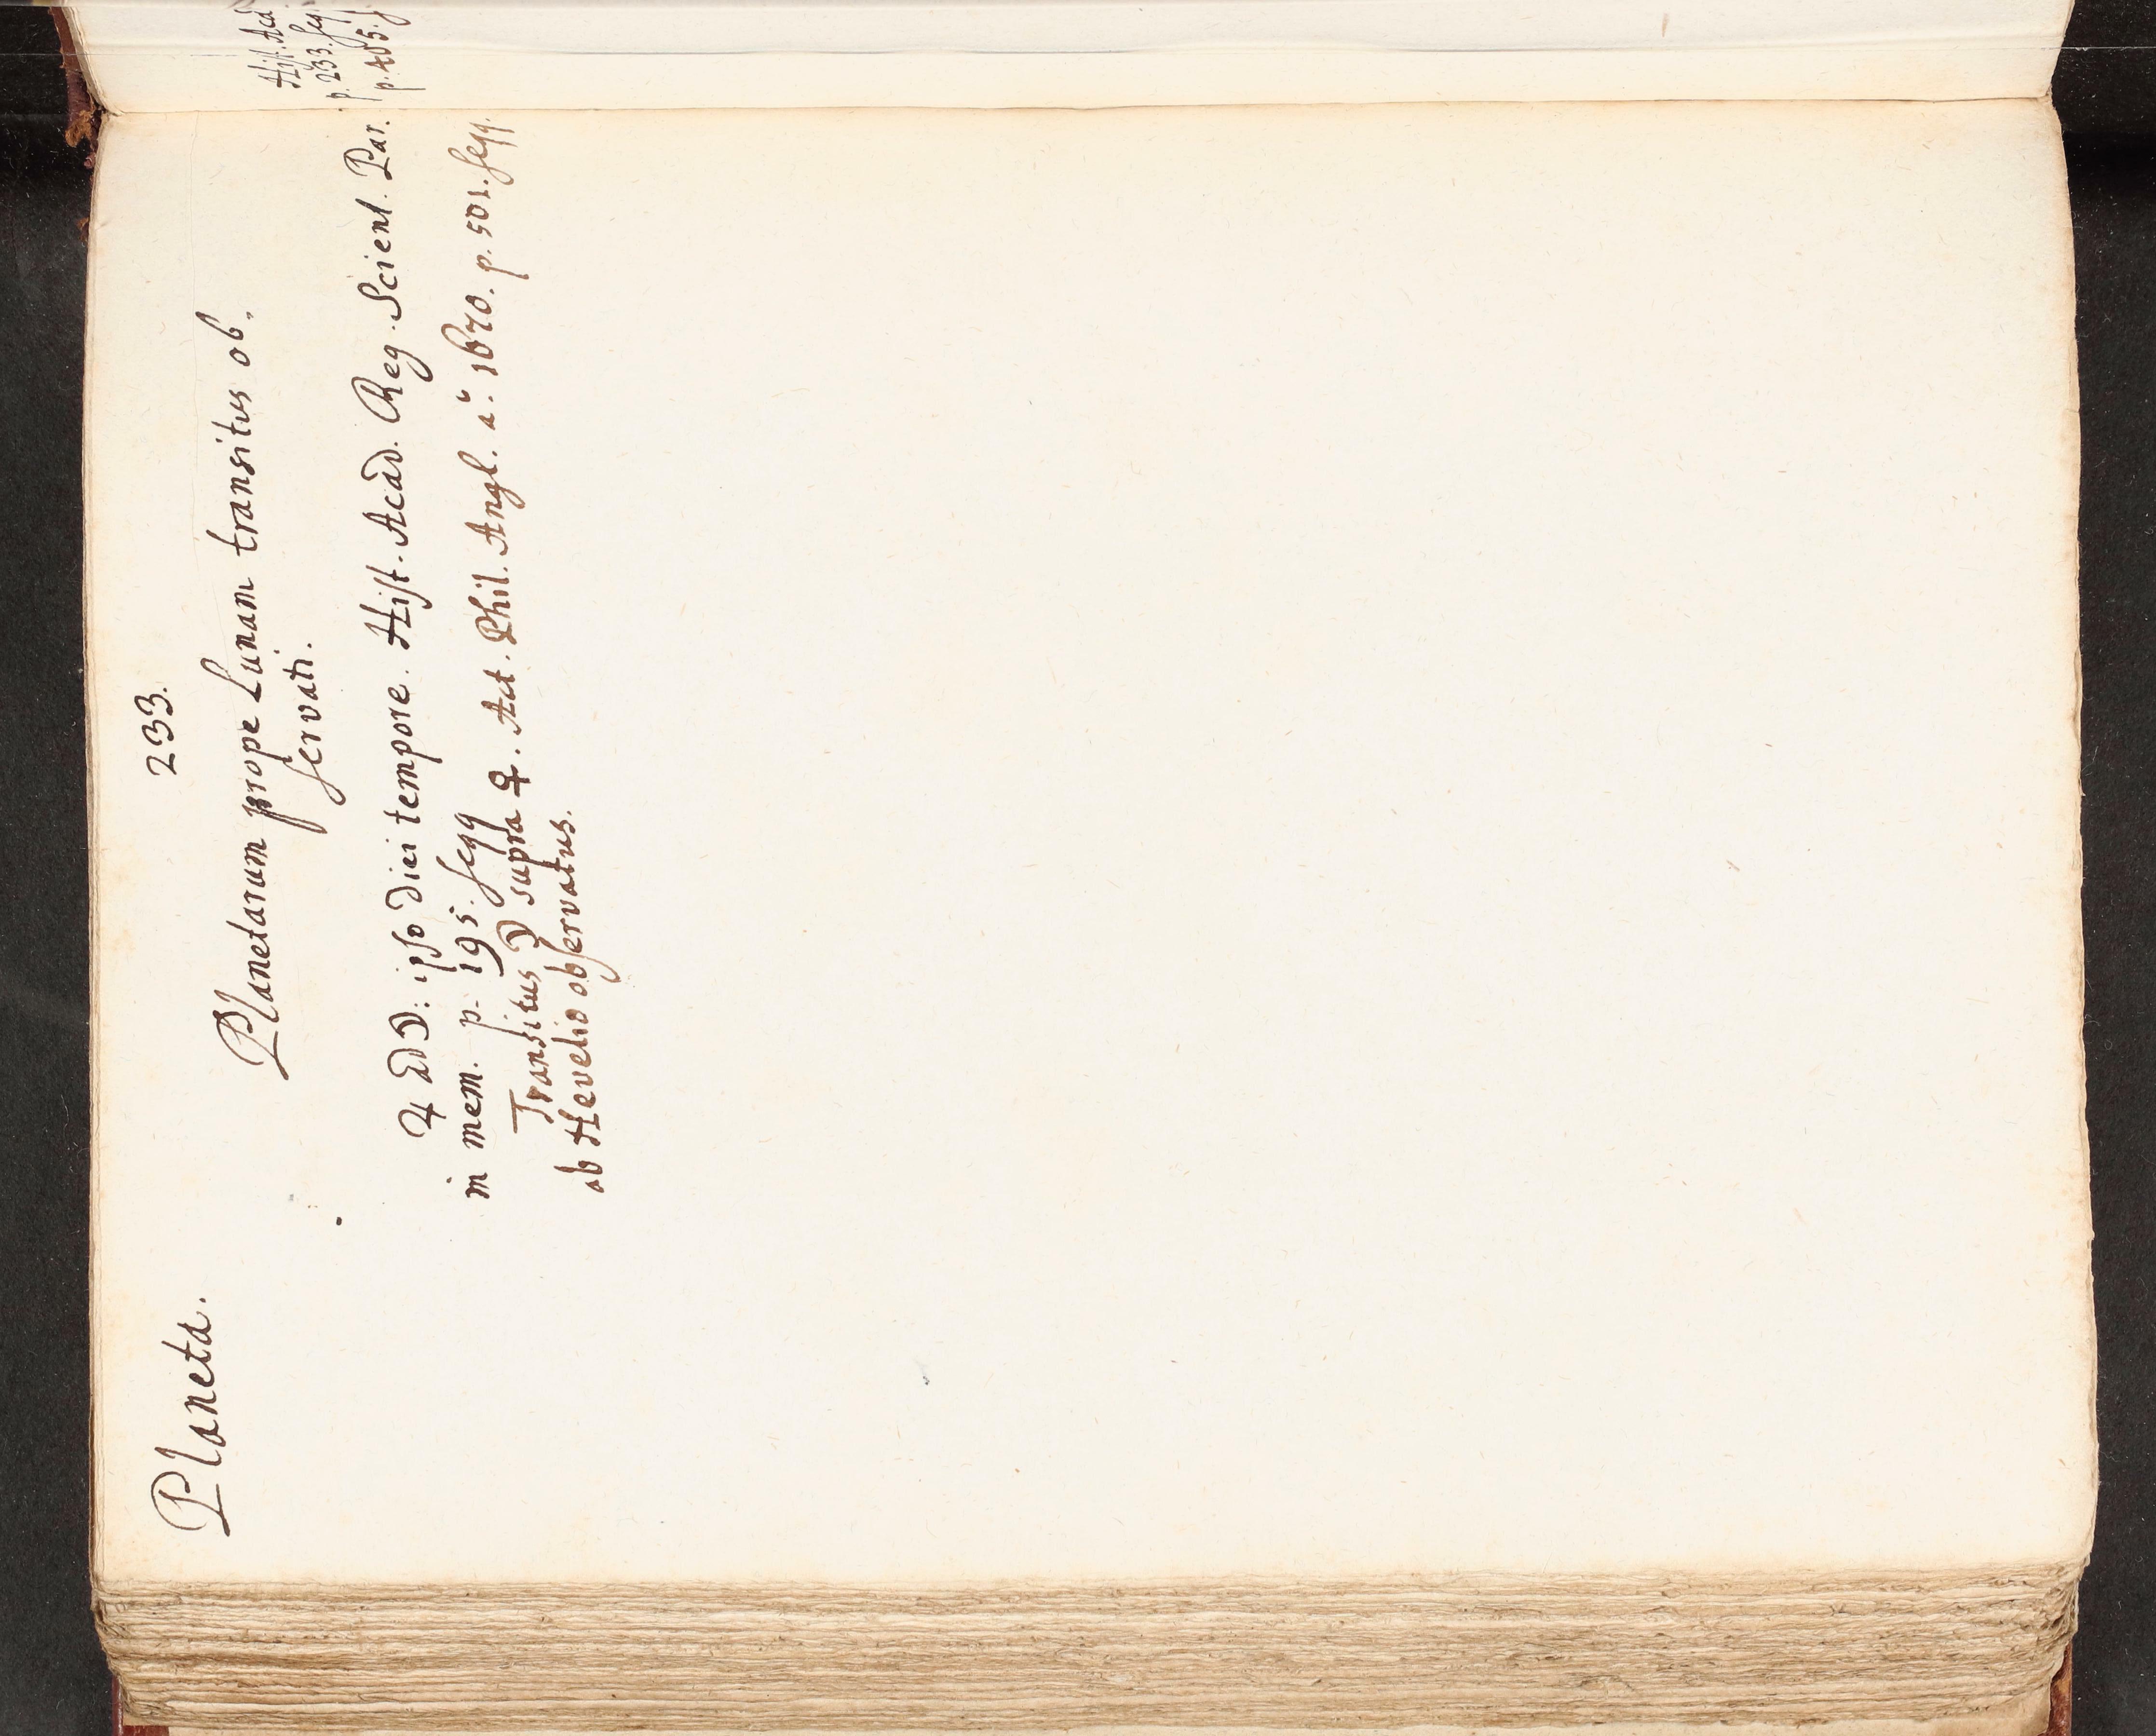 Planeta.
233.
Planetarum prope Lunam transitus ob„
servati.
♃ ad ☽: ipso diei tempore. Hist. Acad. Reg. Scient. Par.
in mem. p. 195. seqq
Transitus ☽ supra ♀. Act. Phil. Angl. a.° 1670. p. 501. seqq.
ab Hevelio observatus.
Hist. Acd.
p. 233. seq
p. 405.